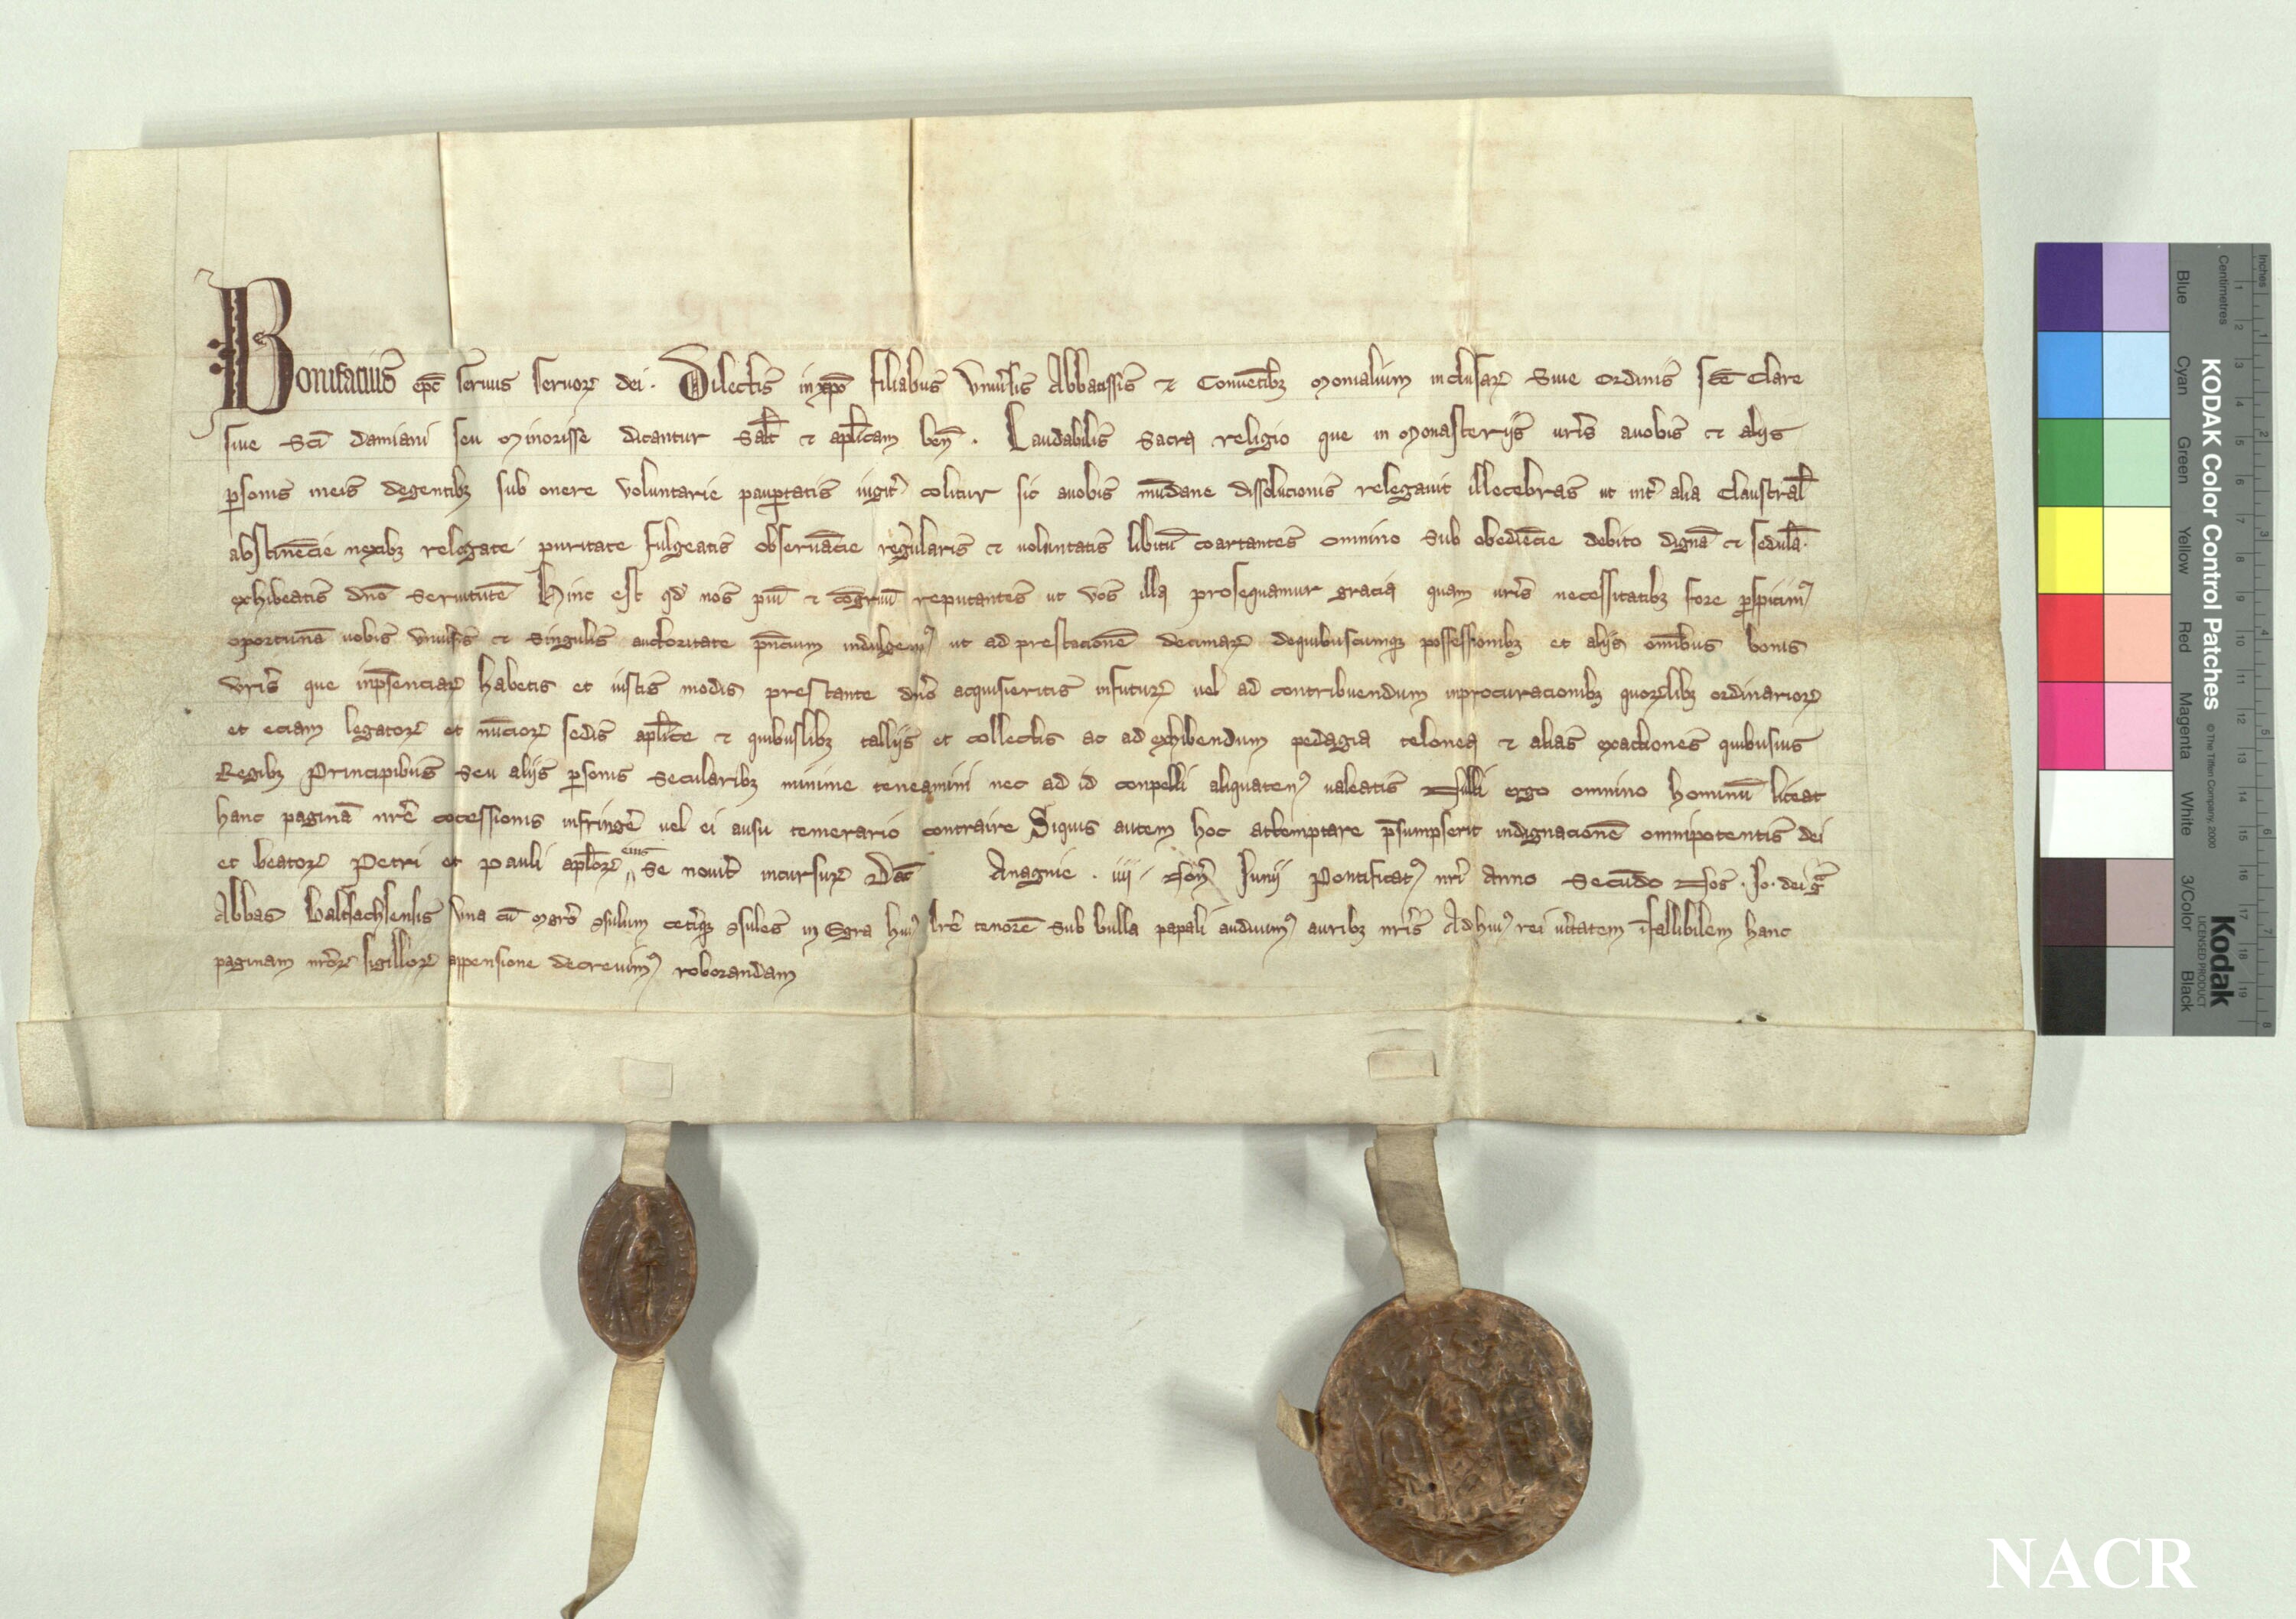 Bonifatius ep̄c seruus seruoꝝ dei. Dilectis in xp̄o filiabus Vniu̓sis Abbatissis ⁊ Conuētibꝫ Monialium inclusaꝝ Siue Ordinis sc̄e Clare
siue Sc̄i damiani seu Minorisse dicantur Salt̄ ⁊ ap̄licam ben̄. Laudabilis Sacra religio que in Monasterijs ur̄is auobis ⁊ alijs
ꝑsonis ineis degentibꝫ sub onere Voluntarie pauꝑtatis iugit̓ colitur sic auobis mūdane dissolucionis relegauit illecebras ut int̓ alia Claustral̄
abstinēcie nexibꝫ relegate puritate fulgeatis obseruācie regularis ⁊ uoluntatis libitū coartantes omnino Sub obediēcie debito dignā ⁊ sedulā.
exhibeatis dn̄o Seruitutē Hinc est qd̓ nos piū ⁊ cōgruū reputantes ut Vos illa prosequamur gracia quam ur̄is necessitatibꝫ fore ꝑspicimꝰ
oportunā uobis Vniu̓sis ⁊ Singulis auctoritate p̄ncium indulgemꝰ ut ad prestacionē decimaꝝ dequibuscumqꝫ possessionibꝫ et alijs om̄ibus bonis
Vr̄is que inp̄senciaꝝ habetis et iustis modis prestante dn̄o acquisieritis infutuꝝ uel ad contribuendum inprocuracionibꝫ quoꝝlibꝫ ordinarioꝝ
et eciam legatoꝝ et nūcioꝝ sedis ap̄lice ⁊ quibuslibꝫ tallijs et collectis ac ad exhibendum pedagia telonea ⁊ alias exactiones quibusuis
Regibꝫ Principibus Seu alijs ꝑsonis Secularibꝫ minime teneamini nec ad id conpelli aliquatenꝰ ualeatis Nulli ergo omnino hominū liceat
hanc paginā nr̄e cōcessionis infringe̓ uel ei ausu temerario contraire Siquis autem hoc attemptare p̄sumpserit indignacionē omnipotentis dei
et beatoꝝ Petri et Pauli ap̄loꝝ eius se nouit̓ incursuꝝ Dat̄ Anagnie. iiij. Non̄ Junij Pontificatꝰ nr̄i Anno Secūdo Nos. Jo. dei gr̄a
Abbas Waltsachsensis Vna cū Mgr̄o ꝯsulum cet̓iqꝫ ꝯsules in Egra huiꝰ lr̄e tenorē Sub bulla papali audiuimꝰ auribꝫ nr̄is Ad huiꝰ rei u̓itatem īfallibilem hanc
paginam nr̄oꝝ sigilloꝝ appensione decreuimꝰ roborandam
KODAK Color Control Patches © The Tiffen Company, 2000
Kodak
LICENSED PRODUCT
Blue Cyan Green Yellow Red Magenta White 3/Color Black
Inches 1 2 3 4 5 6 7 8
Centimetres 1 2 3 4 5 6 7 8 9 10 11 12 13 14 15 16 17 18 19
NACR